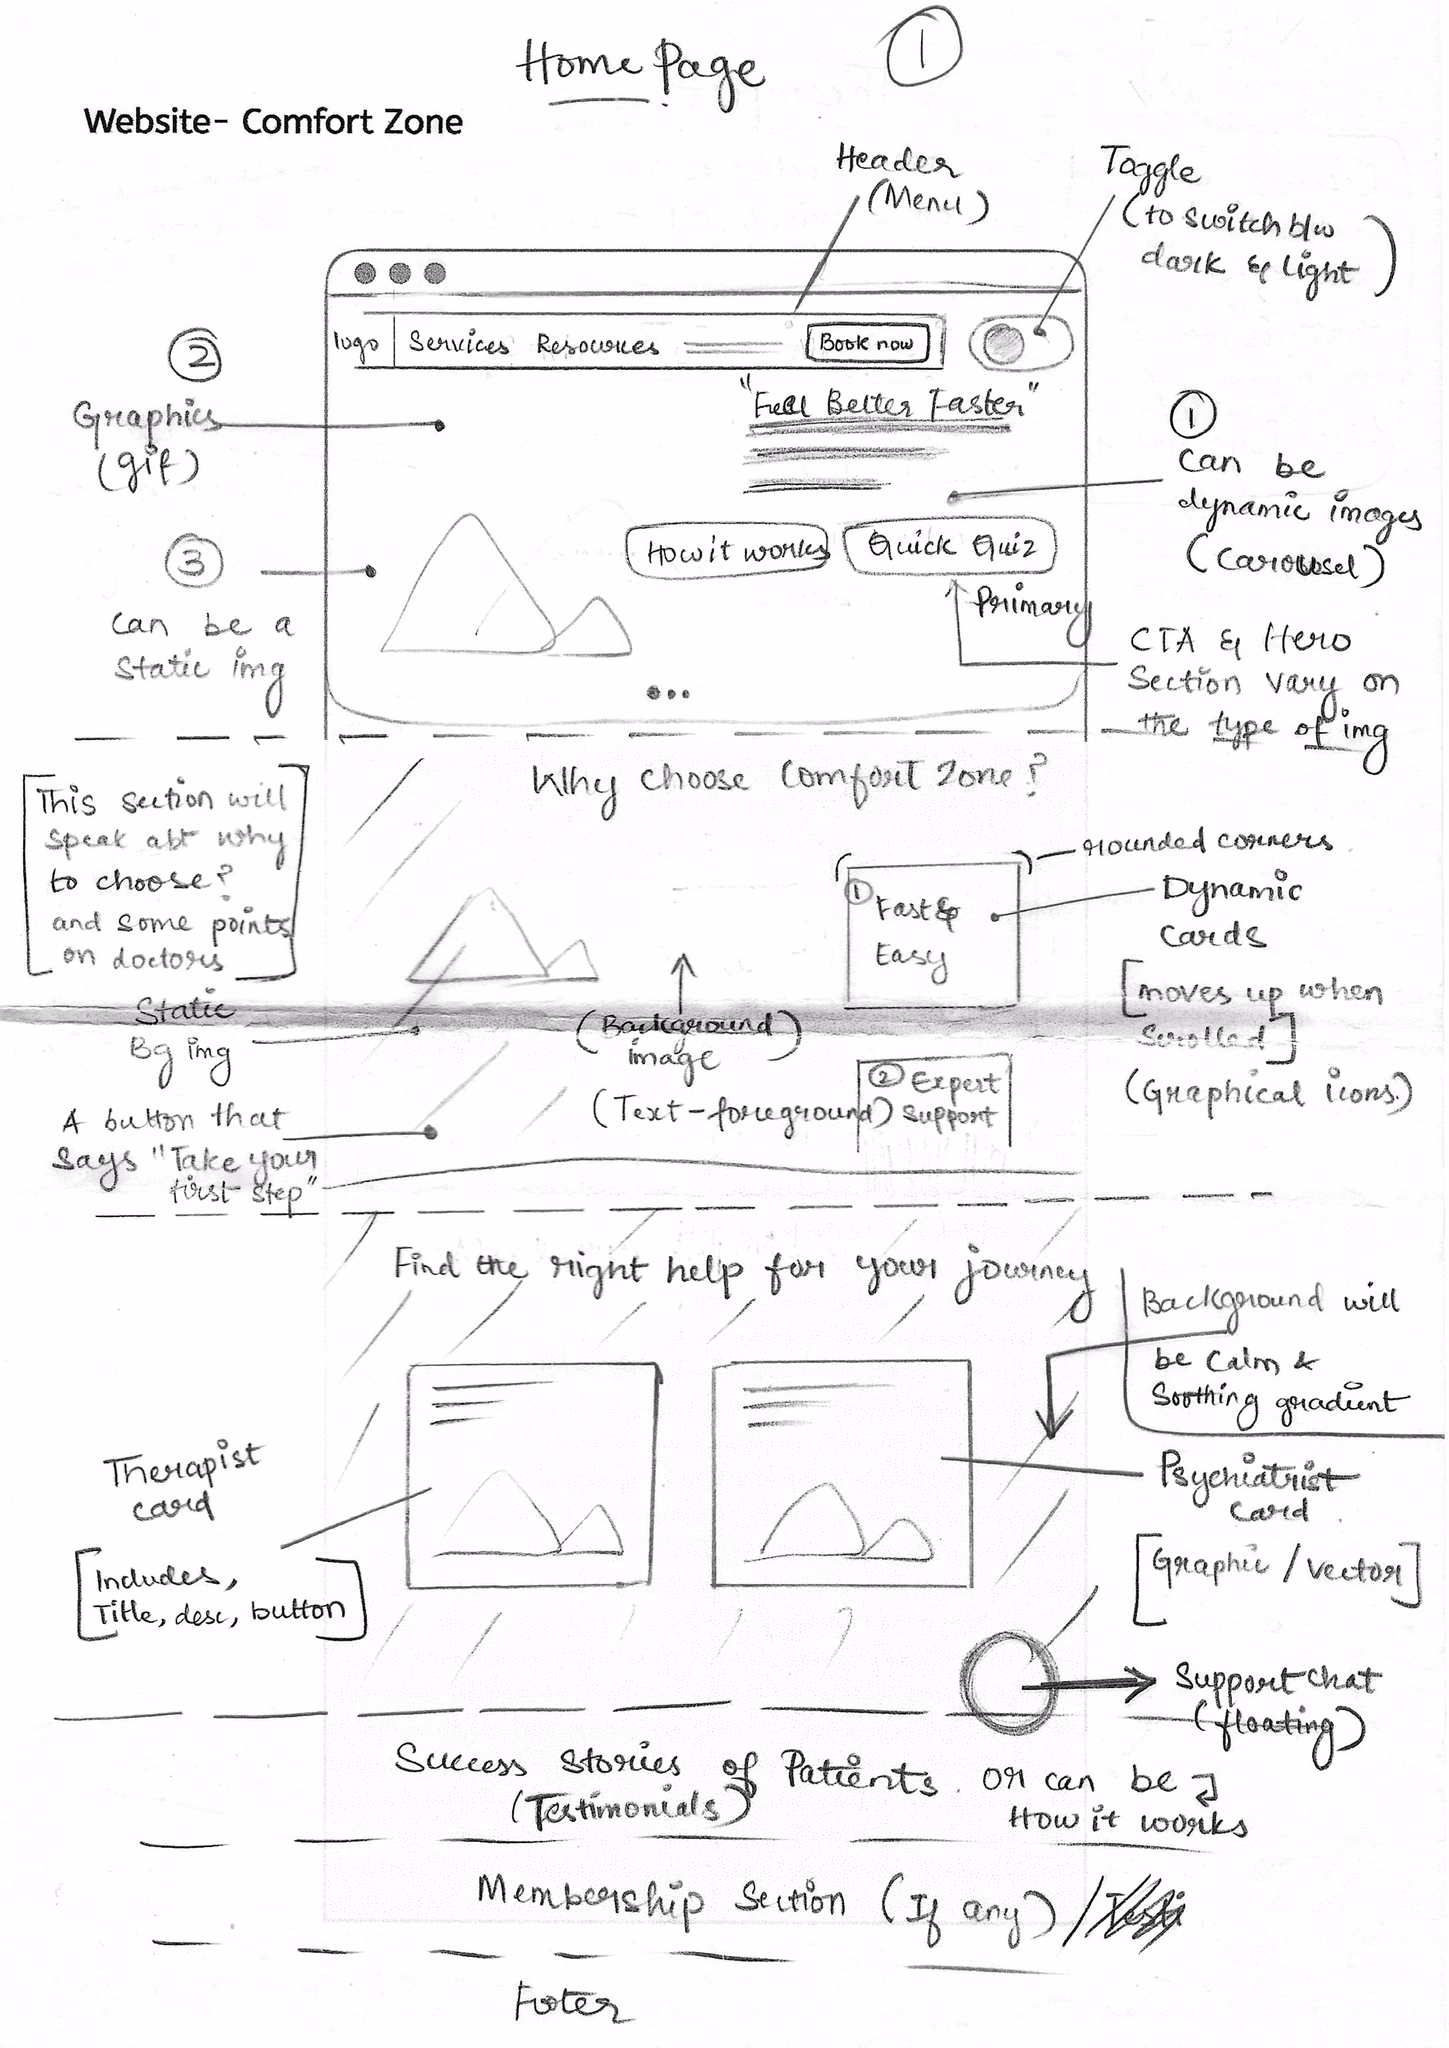 Home Page
1
Website- Comfort Zone
Header
(Menu)
Toggle
(to switch b/w
dark & light)
logo
Services Resources
Book now
2
Graphics
(gif)
"Feel Better Faster"
1
Can be
dynamic images
(Carousel)
3
Can be a
static img
How it works
Quick Quiz
Primary
CTA & Hero
Section vary on
the type of img
Why choose Comfort Zone?
[This section will
speak abt why
to choose?
and some points
on doctors]
rounded corners
1 Fast &
Easy
Dynamic
cards
[moves up when
scrolled]
(Graphical icons)
Static
Bg img
(Background
image)
(Text-foreground)
2 Expert
support
A button that
says "Take your
first step"
Find the right help for your journey
Background will
be Calm &
Soothing gradient
Therapist
card
[Includes,
Title, desc, button]
Psychiatrist
card
[Graphic / vector]
Support chat
(floating)
Success stories of Patients. or can be
(Testimonials)
How it works
Membership Section (If any) /
Footer